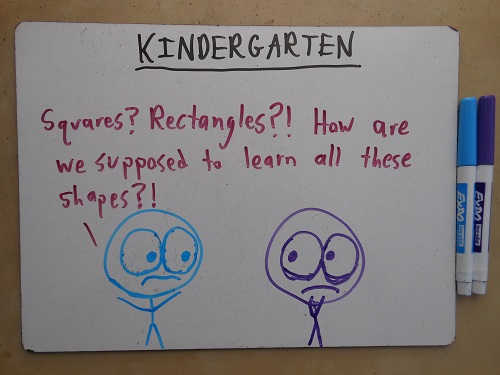 KINDERGARTEN
Squares? Rectangles?! How are
we supposed to learn all these
shapes?!
EXPO
EXPO